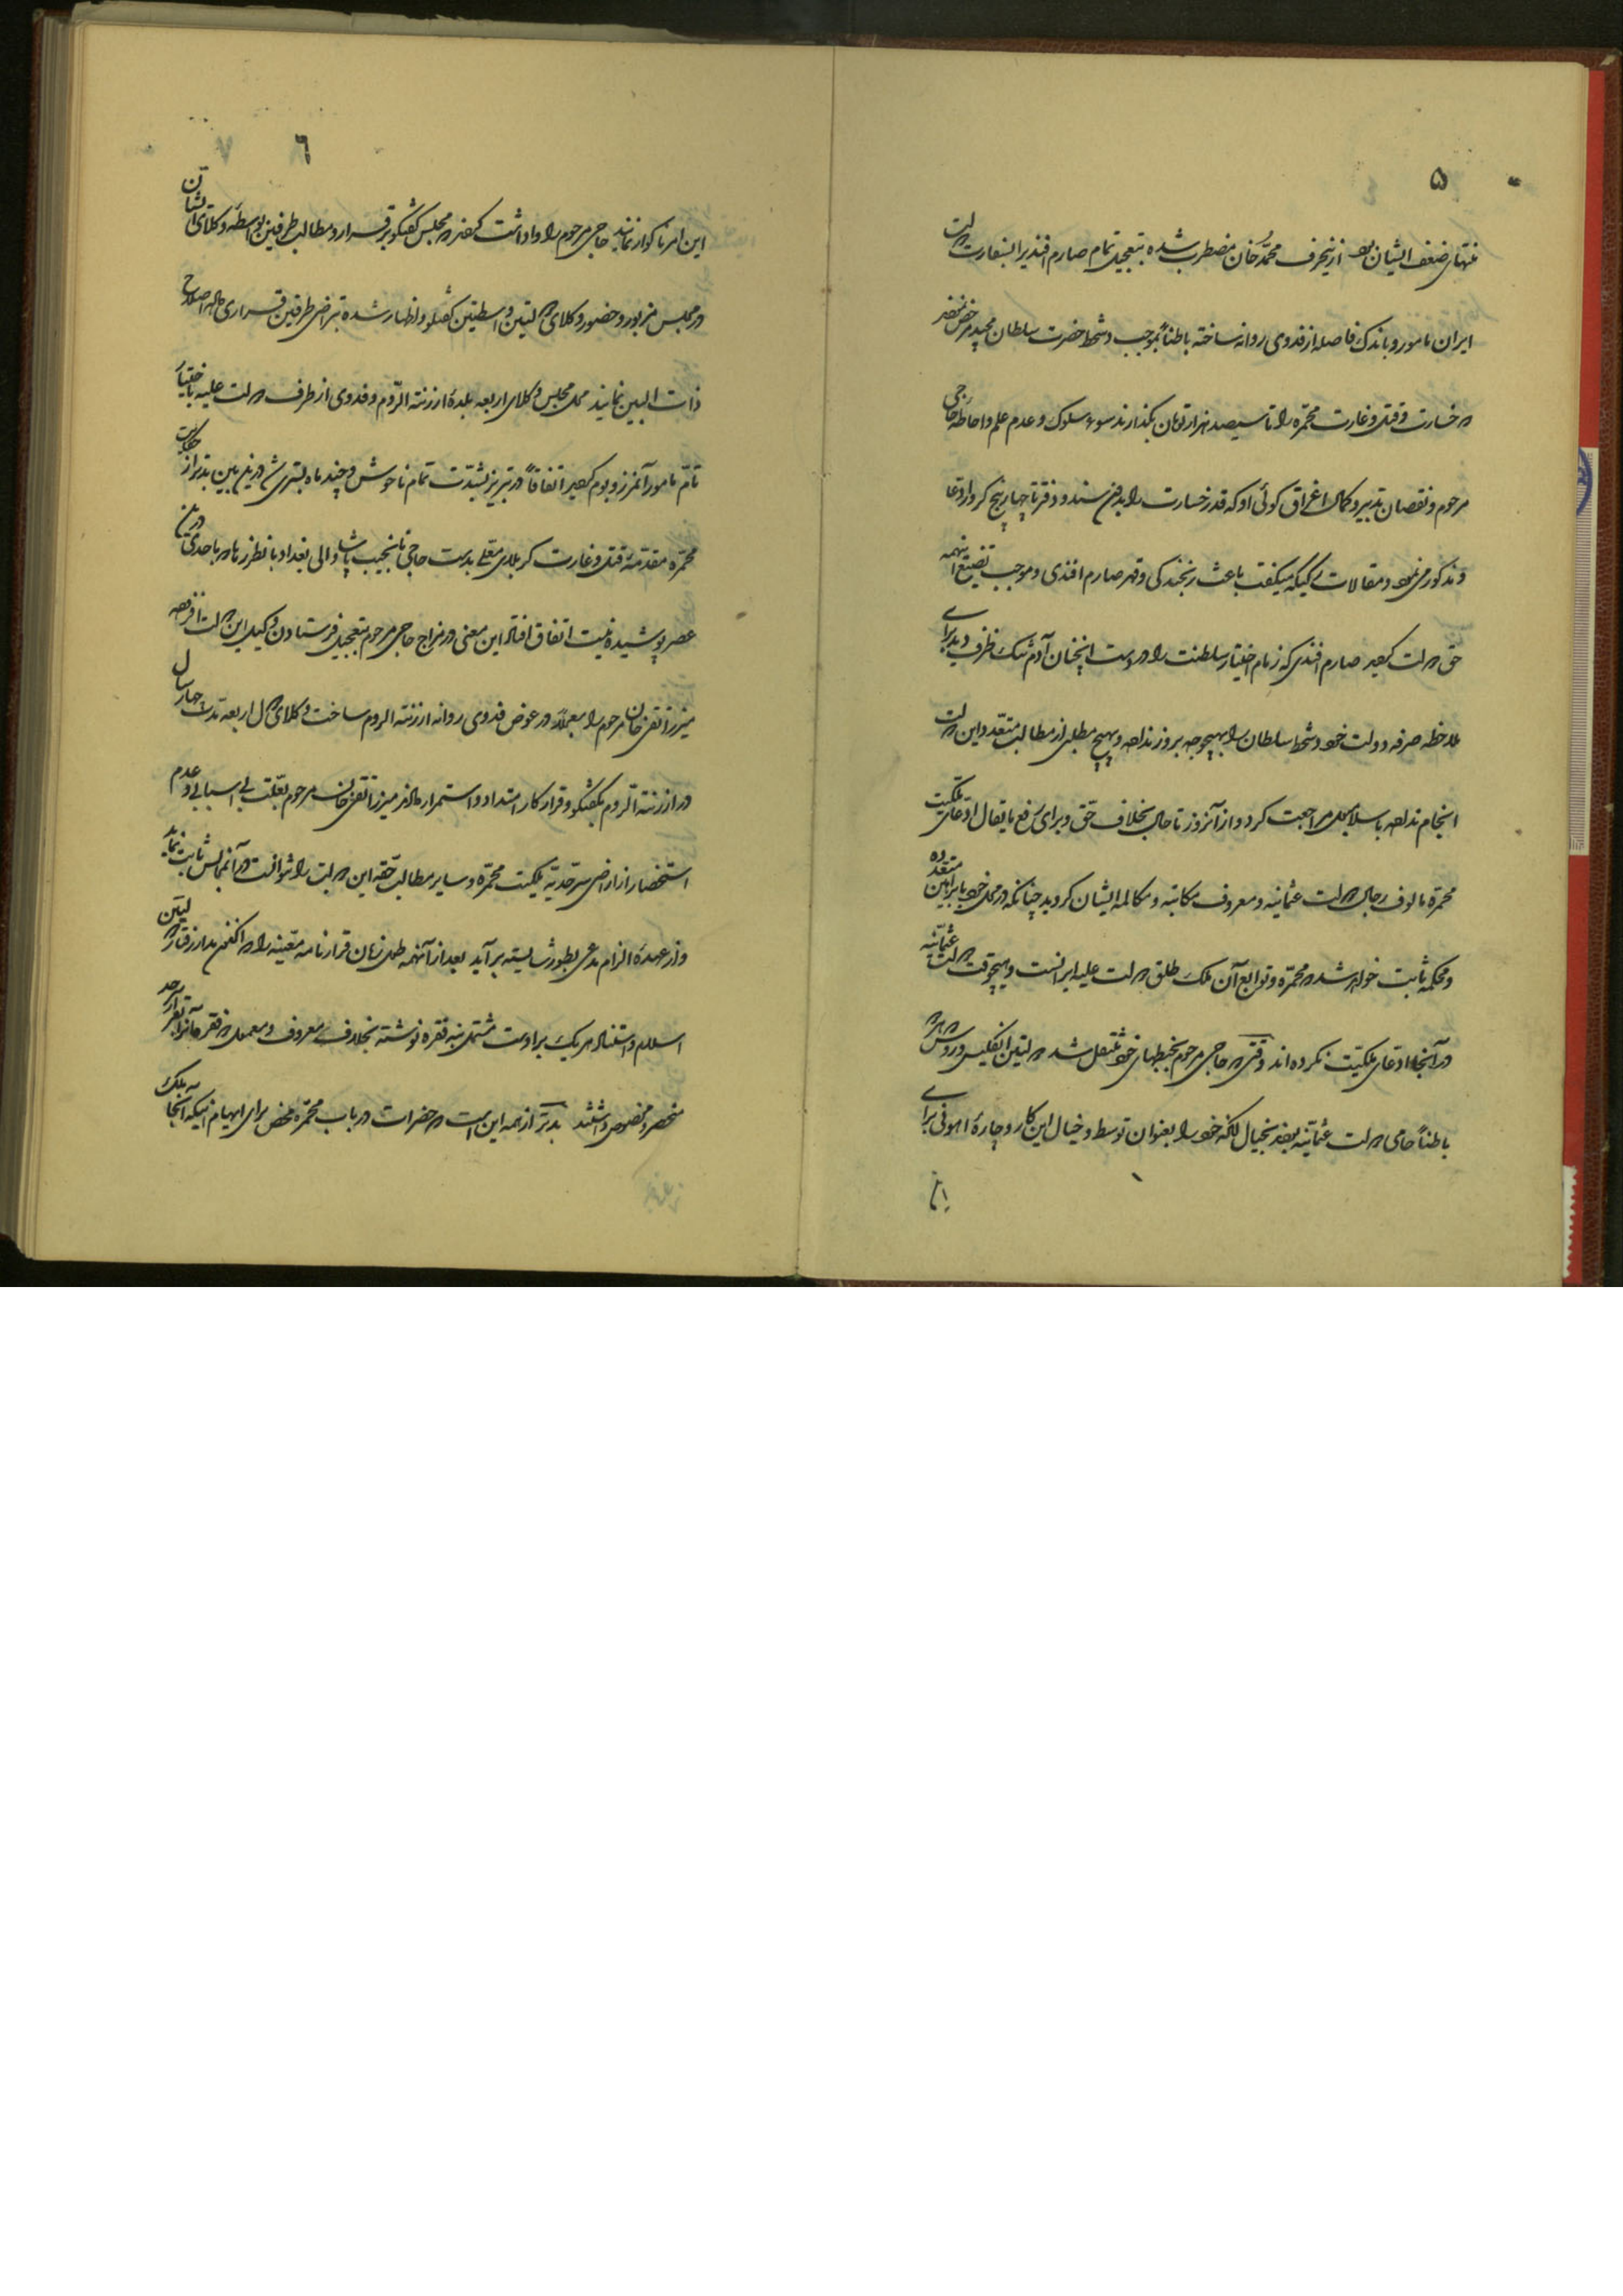 ۵
منتهای ضعف ایشان بود از اینحرف محمد خان مضطرب شده بتعجیل تمام صارم افندیرا بسفارت دولت
ایران مامور و باندک فاصله از فدوی روانه ساخته باطناً بموجب دستخط حضرت سلطان مجید مرخص
خسارت و قتل و غارت محمره را تا سیصد هزار تومان بگذارند سوء سلوک و عدم علم و احاطه حاجی
مرحوم و نقصان تدبیر و کمال اغراق گوئی او که قدر خسارت را بدفتر تا چهار پنج کرور ادعا
و مذکور می نمود و مقالات رکیکه میگفت باعث رنجیدگی و قهر صارم افندی و موجب تضییع اینهمه
حق دولت گردید صارم افندی که زمام اختیار سلطنت را در دست اینچنان آدم سبک ظرف دید برای
ملاحظه صرفه دولت خود دستخط سلطان را بهیچوجه بروز نداده و بهیچ مطلبی از مطالب متعدده این دولت
انجام نداده باسلامبول مراجعت کرد و از آنروز تا حال بخلاف حق و برای رفع ما یقال ادعای ملکیت
محمره مالوف رجال دولت عثمانیه و معروف مکاتبه و مکالمه ایشان گردید چنانکه در محل خود با براهین متعدده
و محکمه ثابت خواهد شد که محمره و توابع آن ملک طلق دولت علیه ایرانست و هیچوقت دولت عثمانیه
در آنجا ادعای ملکیت نکرده اند وقتی که حاجی مرحوم بخبطهای خود منتقل شد دولتین انگلیس و روس که
باطناً حامی دولت عثمانیه بودند بخیال آنکه خود را بعنوان توسط دخیال این کار و چاره اهونی برای
این
٦
این امر ناگوار نمایند حاجی مرحوم را واداشت که در مجلس گفتگو برقرار و مطالب طرفین بواسطه وکلای ایشان
در مجلس مزبور و حضور وکلای دولتین واسطتین گفتگو و اظهار شده بتراضی طرفین قراری داده اصلاح
ذات البین نمایند محل مجلس وکلای اربعه بلده ارزنة الروم و فدوی از طرف دولت علیه باختیار
تام مامور آنمرز و بوم گردید اتفاقاً در تبریز بشدت تمام ناخوش و چند ماه بستری شد در این بین بدتر از حکایت
محمره مقدمه قتل و غارت کربلای معلی بدست حاجی نجیب پاشا والی بغداد بانطرزها که باحدی در این
عصر پوشیده نیست اتفاق افتاد این معنی در مزاج حاجی مرحوم بتعجیل فرستادن وکیل این دولت افزوده
میرزا تقی خان مرحوم را معجلاً در عوض فدوی روانه ارزنة الروم ساخت وکلای دول اربعه مدت چهار سال
در ارزنة الروم بگفتگو و قرار کار امتداد و استمرار دادند میرزا تقی خان مرحوم بعلت بی اسبابی و عدم
استحضار از اراضی سرحدیه ملکیت محمره و سایر مطالب حقه این دولت را نتوانست در آنمجلس ثابت نماید
و از عهده الزام مدعی بطور شایسته برآید بعد از آنهمه طول زمان قرارنامه معینه را که اکنون مدار رفتار دولتین
اسلام و استناد هر یک بر اوست مشتمل بنه فقره نوشته بخلاف معروف و معمول دو فقره آنرا بقرار سرحد
منحصر و مخصوص داشتند بدتر از همه این است که حضرات در باب محمره محض برای ابهام اینکه آنجا ملک